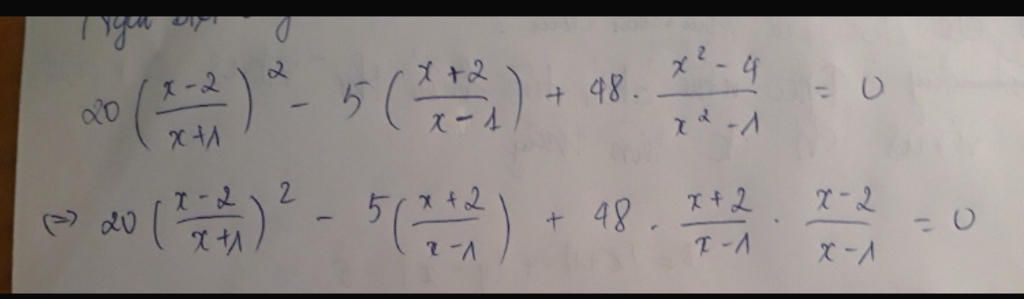 20 (x-2/x+1)² - 5 (x+2/x-1) + 48 . x²-4/x²-1 = 0
(=) 20 (x-2/x+1)² - 5 (x+2/x-1) + 48 . x+2/x-1 . x-2/x-1 = 0